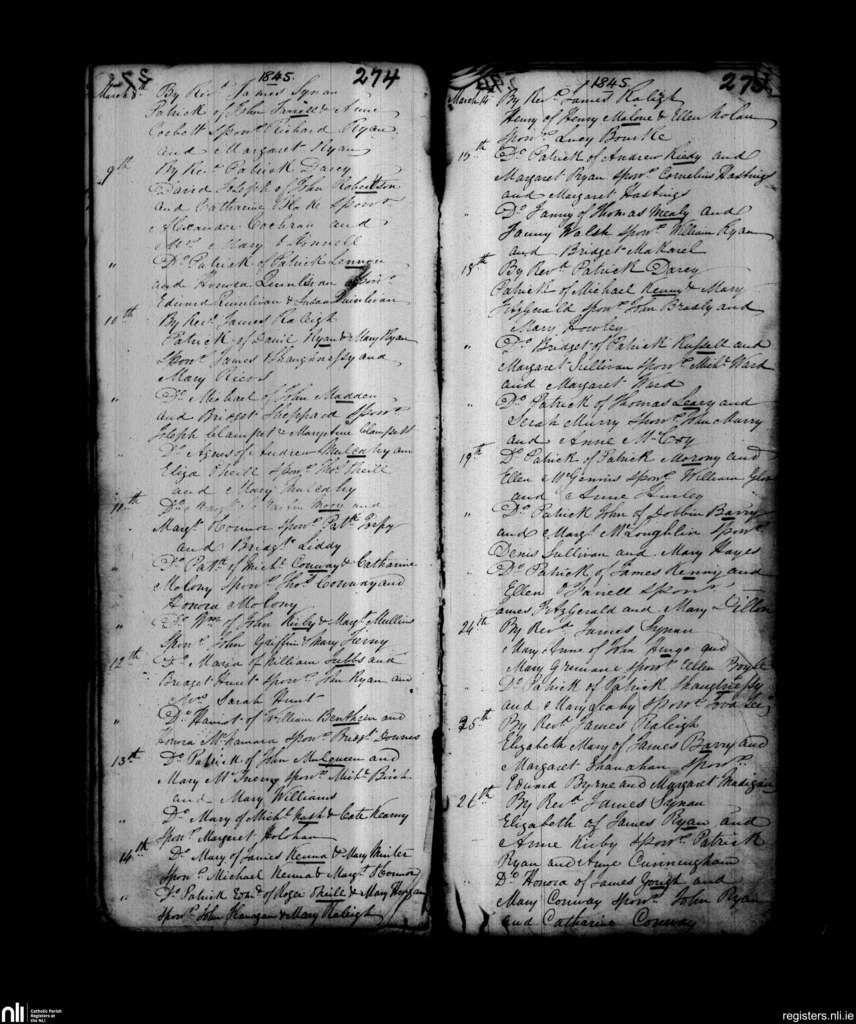 1845. 274
March 8th By Revd. James Synan
Patrick of John Farrell & Anne
Corbett Sponrs. Richard Ryan
and Margaret Ryan
9th By Revd. Patrick Darcy
David Joseph of John Robertson
and Catharine Blake Sponrs.
Alexander Cochran and
Mrs. Mary
" Do. Patrick of Patrick Lennon
and Honora Quinlivan Sponrs.
Edward Quinlivan & Susan Quinlivan
10th By Revd. James Raleigh
Patrick of Daniel Ryan & Mary Ryan
Sponrs. James Shaughnessy and
Mary
" Do. Michael of John Madden
and Bridget Sheppard Sponrs.
Joseph Clampett & Mary Anne Clampett
" Do. Agnes of Andrew Mulcahy and
Eliza Sponrs. Thos.
and Mary Mulcahy
11th Do. of Martin and
Margt. Connor Sponrs. Patk.
and Bridgt. Liddy
" Do. Patk. of Michl. Conway & Catharine
Molony Sponrs. Thos. Conway and
Honora Molony
" Do. Wm. of John Kirby & Margt. Mullins
Sponrs. John Griffin & Mary
12th Do. Maria of William Tubbs and
Bridget Hunt Sponrs. John Ryan and
Mrs. Sarah Hunt
" Do. Harriot of William Bentham and
Honora McNamara Sponrs. Bridgt. Downes
13th Do. Patrick of John Mulqueen and
Mary McInerny Sponrs. Michl.
and Mary Williams
" Do. Mary of Michl. Nash & Cate Kearny
Sponr. Margaret Holohan
14th Do. Mary of James Kenna & Mary Minter
Sponrs. Michael Kenna & Margt. OConnor
" Do. Patrick Edwd. of Roger & Mary
Sponrs. John Flanagan & Mary Raleigh
1845. 275
March 14 By Revd. James Raleigh
Henry of Henry Malone & Ellen Nolan
Sponr. Lucy Bourke
15th Do. Patrick of Andrew and
Margaret Ryan Sponrs. Cornelius Hastings
and Margaret Hastings
" Do. Fanny of Thomas Mealy and
Fanny Walsh Sponrs. William Ryan
and Bridget
18th By Revd. Patrick Darcy
Patrick of Michael Kenny & Mary
Fitzgerald Sponrs. John Bradly and
Mary Howley
" Do. Bridget of Patrick Russell and
Margaret Sullivan Sponrs. Michl. Ward
and Margaret Ward
" Do. Patrick of Thomas Leary and
Sarah Murry Sponrs. John Murry
and Anne McCoy
19th Do. Patrick of Patrick Morony and
Ellen Sponrs. William
and Anne Hurley
" Do. Patrick John of Barry
and Margt. McLoughlin Sponrs.
Denis Sullivan and Mary Hayes
" Do. Patrick of James Kenny and
Ellen OFarrell Sponrs.
James Fitzgerald and Mary Dillon
24th By Revd. James Synan
Mary Anne of John and
Mary Sponr. Ellen Boyle
" Do. Patrick of Patrick Shaughnessy
and Mary Leahy Sponr.
25th By Revd. James Raleigh
Elizabeth Mary of James Barry and
Margaret Shanahan Sponrs.
Edward Byrne and Margaret Madigan
26th By Revd. James Synan
Elizabeth of James Ryan and
Anne Kirby Sponrs. Patrick
Ryan and Anne Cunningham
Do. Honora of James Gough and
Mary Conway Sponrs. John Ryan
and Catharine Conway
nli
Catholic Parish
Registers at
the NLI
registers.nli.ie